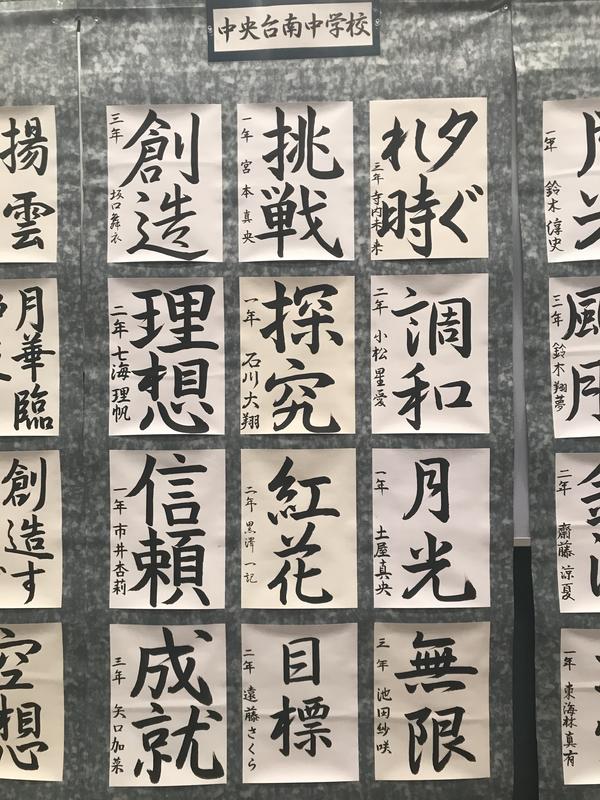 中央台南中学校
一年 鈴木
夕ぐ
れ時
三年 寺内未来
挑戦
一年 宮本真央
創造
三年 坂口舞衣
揚雲
三年 鈴木翔夢
調和
二年 小松星愛
探究
一年 石川大翔
理想
二年 七海理帆
月華臨
二年 齋藤涼夏
月光
一年 土屋真央
紅花
二年 黒澤一記
信頼
一年 市井杏莉
創造す
一年 東海林真有
無限
三年 池田紗咲
目標
二年 遠藤さくら
成就
三年 矢口加菜
空想